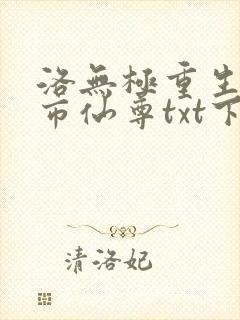 洛無極重生
市仙尊txt下
清洛妃